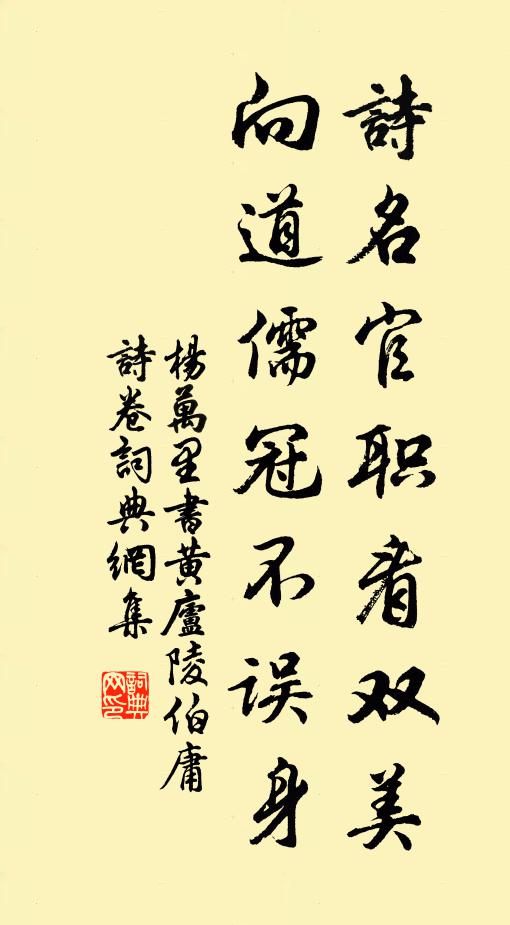 詩名官职看双美
向道儒冠不误身
楊萬里書黄廬陵伯庸
詩卷詞典網集
詞典网印